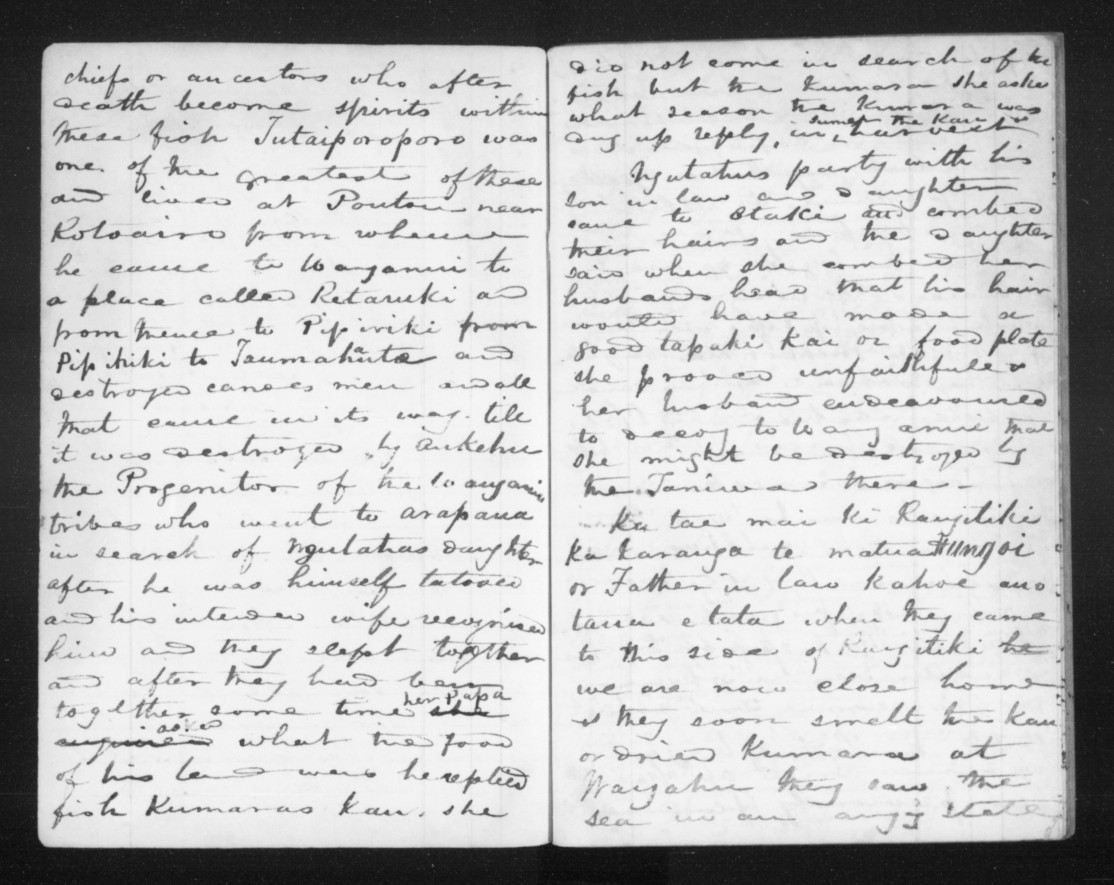 chiefs or ancestors who after
death become spirits within
these fish Tutaiporoporo was
one of the greatest of these
and lived at Poutou near
Rotoaira from whence
he came to Wanganui to
a place called Retaruki and
from thence to Pipiriki from
Pipiriki to Taumahaute and
destroyed canoes men and all
that came in its way till
it was destroyed by Aukehu
the Progenitor of the Wanganui
tribes who went to Arapaua
in search of Ngutahus daughter
after he was himself tatooed
and his intended wife recognised
him and they slept together
and after they had been
together some time she her Papa
enquired asked what the food
of his land were he replied
fish Kumaras Kau. she
did not come in search of the
fish but the Kumara she asked
what season the Kumara was
dug up reply, in sumer the Kau harvest
Ngutahus party with his
son in law and daughter
came to Otaki and combed
their hairs and the daughter
said when she combed her
husbands head that his hair
would have made a
good tapaki Kai or food plate
she proved unfaithfule &
her husband endeavoured
to decoy to Wanganui that
she might be destroyed by
the Taniwa there -
Ka tae mai ki Rangitiki
Ka karanga te matua Hungoi
or Father in law Kahoe ano
taua e tata when they came
to this side of Rangitiki he
we are now close home
& they soon smelt the Kau
or dried Kumara at
they saw the
sea in an angry state